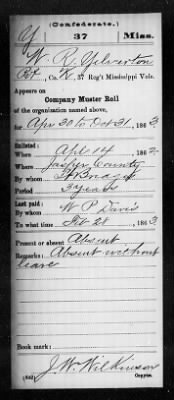 (Confederate.)
Y 37 Miss.
W. R. Yelverton
Pvt, Co. K, 37 Reg't Mississippi Vols.
Appears on
Company Muster Roll
of the organization named above,
for Apr 30 to Oct 31, 1863
Enlisted:
When Apl 14, 1862
Where Jasper County
By whom
Period 3 years
Last paid:
By whom W. P. Davis
To what time Feb 28, 1863
Present or absent Absent
Remarks: Absent without
leave
Book mark:
J. W. Wilkinson
(642) Copyist.